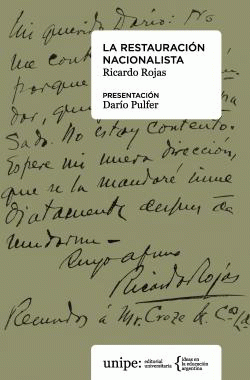 Mi querido Darío: No
me cont
porque
dor, que
sado. No estoy contento.
Espere mi nueva dirección,
que se la mandaré inme
diatamente después de
mudarme —
Suyo afmo
Ricardo Rojas
Recuerdos á Mr. Croze &
LA RESTAURACIÓN
NACIONALISTA
Ricardo Rojas
PRESENTACIÓN
Darío Pulfer
unipe:
editorial
universitaria
ideas en
la educación
argentina